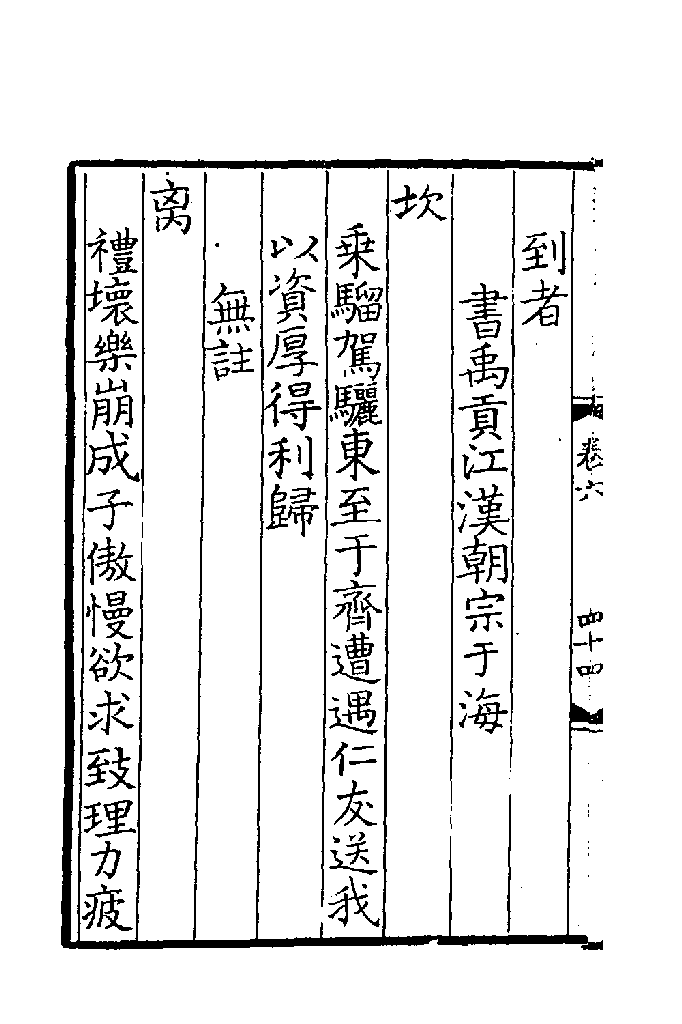 卷六
四十四
到者
書禹貢江漢朝宗于海
坎
乗騮駕驪東至于齊遭遇仁友送我
以資厚得利歸
無註
离
禮壞樂崩成子傲慢欲求致理力疲